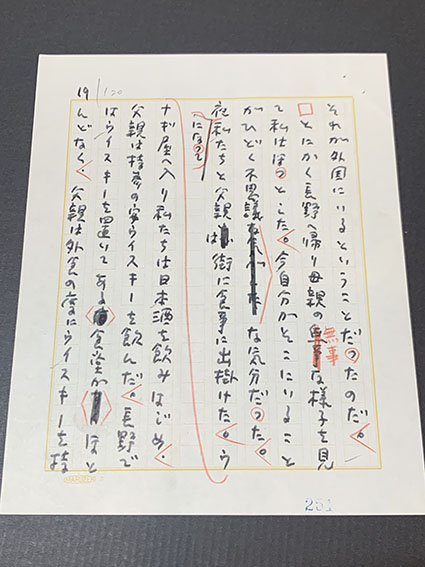 それが外国にいるということだったのだ。
とにかく長野へ帰り母親の無事な様子を見
て私はほっとした。今自分がそこにいること
がひどく不思議な気分だった。
夜私たちと父親は街に食事に出掛けた。う
になって
ナギ屋へ入り私たちは日本酒を飲みはじめ、
父親は持参の安ウイスキーを飲んだ。長野で
はウイスキーを置いてある食堂がほと
んどなく、父親は外食の度にウイスキーを持
19
120
251